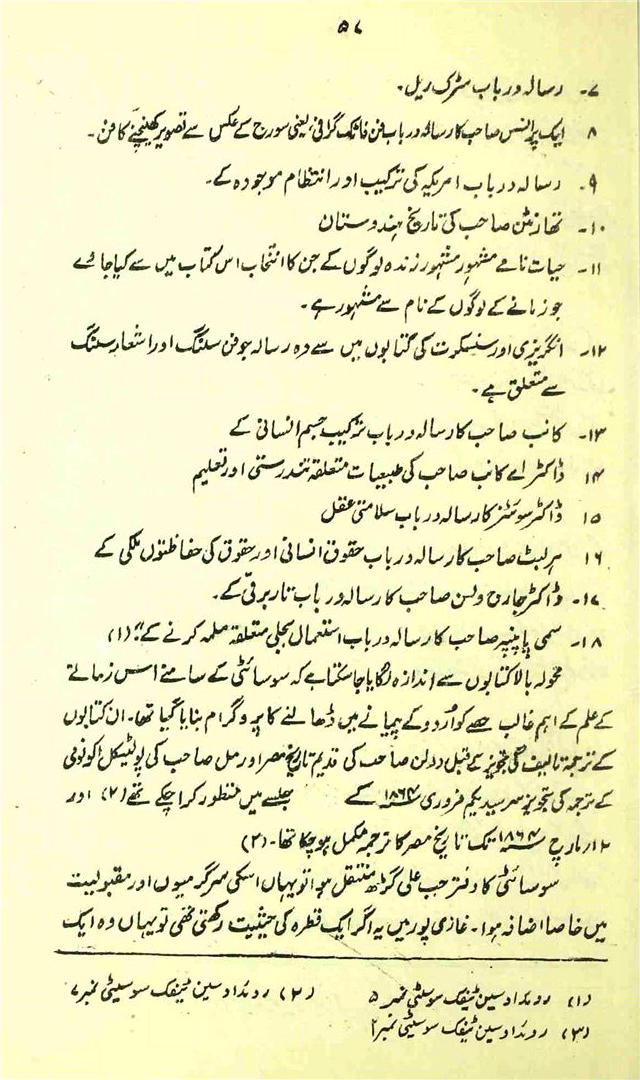 ۵۷
۷۔ رسالہ در باب سٹرک ریل۔
۸ ایک پرانس صاحب کا رسالہ در باب فن فاٹنک گرافی، یعنی سورج کے عکس سے تصویر کھینچنے کا فن۔
۹۔ رسالہ در باب امریکہ کی ترکیب اور انتظام موجودہ کے۔
۱۰۔ تھارنٹن صاحب کی تاریخ ہندوستان
۱۱۔ حیات نامے مشہور مشہور زندہ لوگوں کے جن کا انتخاب اس کتاب میں سے کیا جائے
جو زمانے کے لوگوں کے نام سے مشہور ہے۔
۱۲۔ انگریزی اور سنسکرت کی کتابوں میں سے وہ رسالہ جو فن سلنگ اور اشعار سلنگ
سے متعلق ہے۔
۱۳۔ کانب صاحب کا رسالہ در باب ترکیب جسم انسانی کے
۱۴ ڈاکٹر اے کانب صاحب کی طبیعیات متعلقہ تندرستی اور تعلیم
۱۵ ڈاکٹر سوئنز کا رسالہ در باب سلامتی عقل
۱۶ ہرلبٹ صاحب کا رسالہ در باب حقوق انسانی اور حقوق کی حفاظتوں ملکی کے
۱۷۔ ڈاکٹر جارج ولسن صاحب کا رسالہ در باب تار برقی کے۔
۱۸۔ سمی پاینیہ صاحب کا رسالہ در باب استعمال بجلی متعلقہ ملمہ کرنے کے" (۱)
محولہ بالا کتابوں سے اندازہ لگایا جا سکتا ہے کہ سوسائٹی کے سامنے اس زمانے
کے علم کے اہم غالب حصے کو اُردو کے پیمانے میں ڈھالنے کا پروگرام بنایا گیا تھا۔ ان کتابوں
کے ترجمہ تالیف کی تجویز سے قبل رولن صاحب کی قدیم تاریخ مصر اور مل صاحب کی پولٹیکل اکونومی
کے ترجمہ کی تجویز سر سید یکم فروری ۱۸۶۴ء کے جلسے میں منظور کرا چکے تھے (۲) اور
۱۲ر مارچ ۱۸۶۴ء تک تاریخ مصر کا ترجمہ مکمل ہو چکا تھا۔ (۳)
سوسائٹی کا دفتر جب علی گڑھ منتقل ہوا تو یہاں اسکی سرگرمیوں اور مقبولیت
میں خاصا اضافہ ہوا۔ غازی پور میں یہ اگر ایک قطرہ کی حیثیت رکھتی تھی تو یہاں وہ ایک
(۱) روئداد سین ٹیفک سوسیٹی نمبر ۵ (۲) روئداد سین ٹیفک سوسیٹی نمبر ۷
(۳) روئداد سین ٹیفک سوسیٹی نمبر ۲